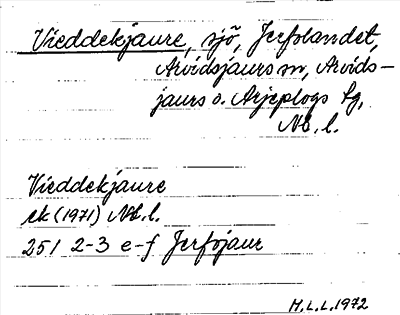 Vieddekjaure, sjö, Jerfolandet,
Arvidsjaurs sn, Arvids-
jaurs o. Arjeplogs tg,
Nb. l.
Vieddekjaure
ek (1971) Nb. l.
25I 2-3 e-f Jerfojaur
H.L.L. 1972